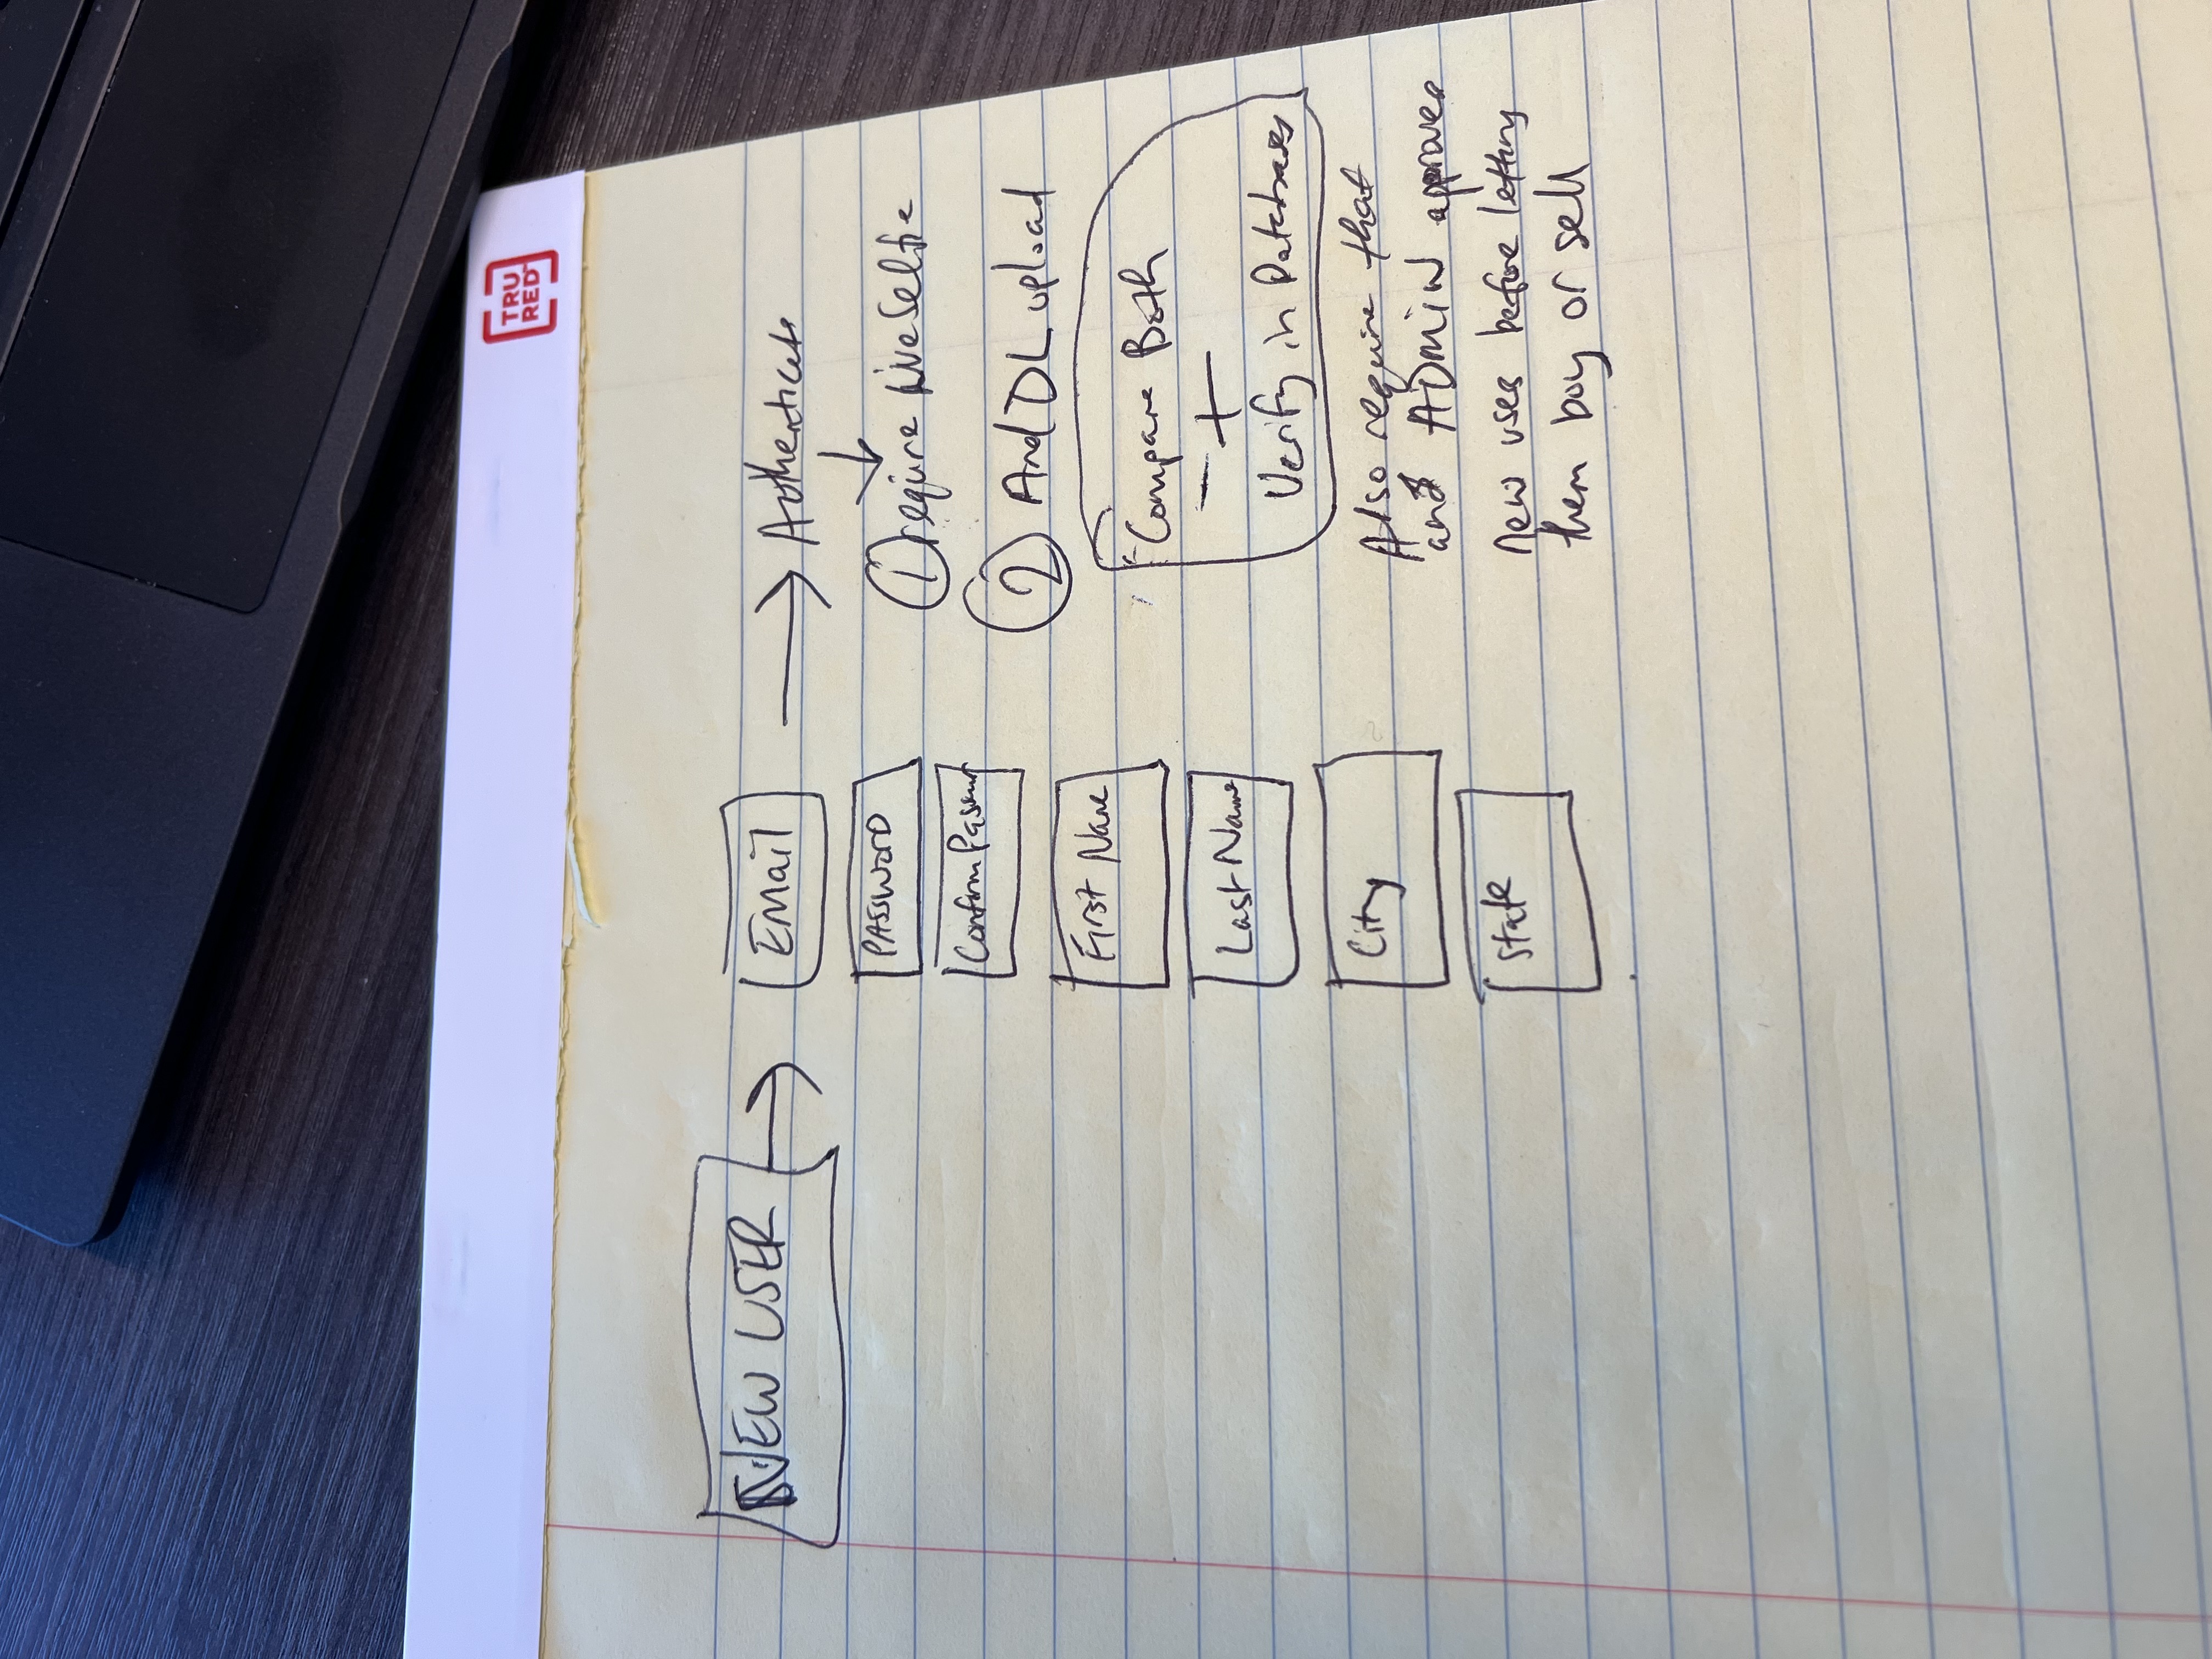 TRU
RED
NEW USER
Email
PASSWORD
Confirm
First Name
Last Name
City
State
Authenticate
1 require Live Selfie
2 And DL upload
Compare Both
+
Verify in Databases
Also require that
and ADMIN approves
new users before letting
them buy or sell